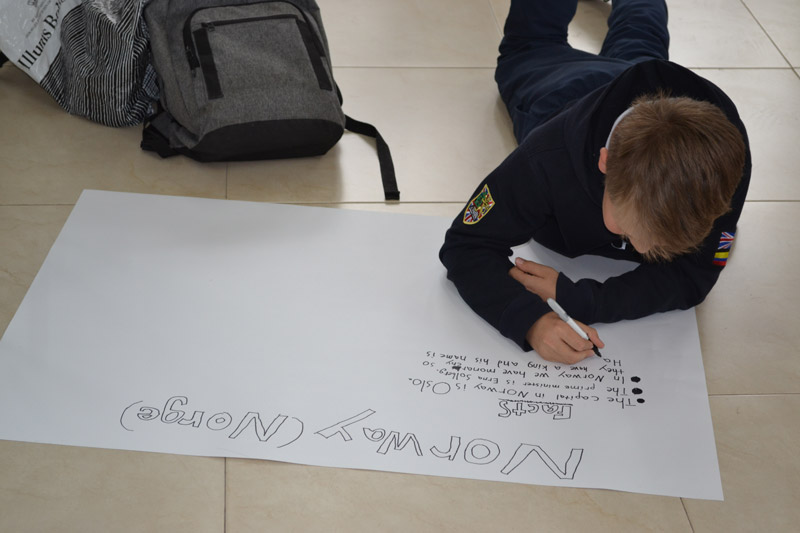 Norway (Norge)
Facts
The Capital in Norway is Oslo.
The prime minister is Erna Solberg.
In Norway we have monarchy so
they have a king and his name is
Ha
Illums